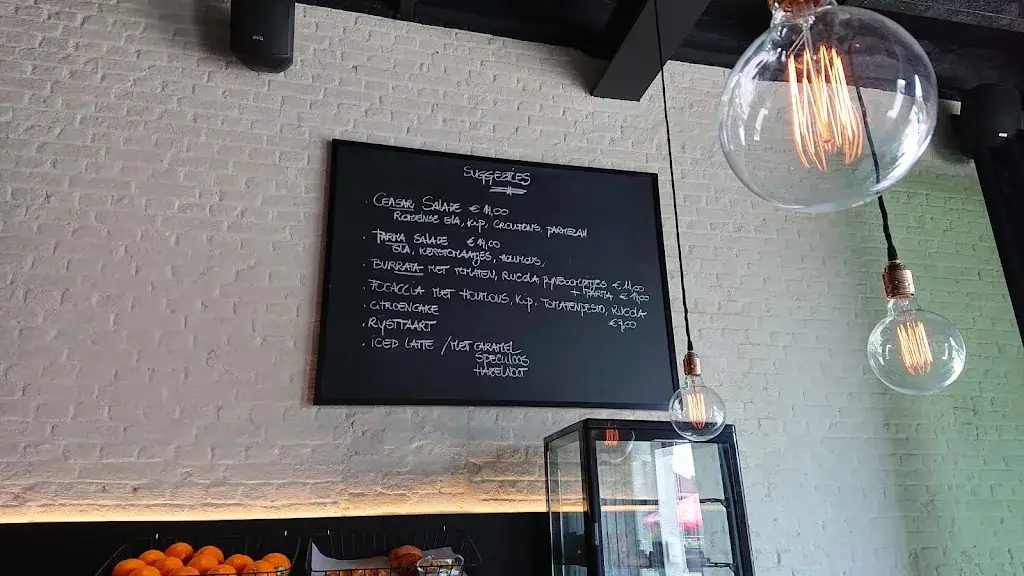 SUGGESTIES
. CEASAR SALADE € 14,00
ROMEINSE SLA, KIP, CROUTONS, PARMEZAN
. PARMA SALADE € 14,00
SLA, KERSTOMAATJES, HOUMOUS,
. BURRATA MET TOMATEN, RUCOLA PIJNBOOMPITJES € 11,00
+ PARMA € 14,00
. FOCACCIA MET HOUMOUS, KIP, TOMATENPESTO, RUCOLA
€ 9,00
. CITROENCAKE
. RIJSTTAART
. ICED LATTE / MET CARAMEL
SPECULOOS
HAZELNOOT